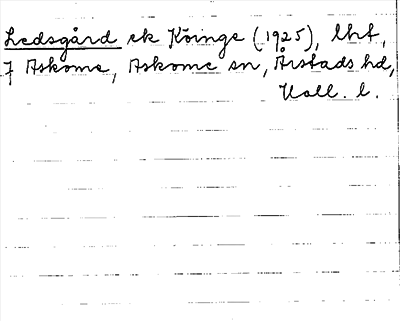 Ledsgård ek Köinge (1925), lht,
7 Askome, Askome sn, Årstads hd,
Hall. l.